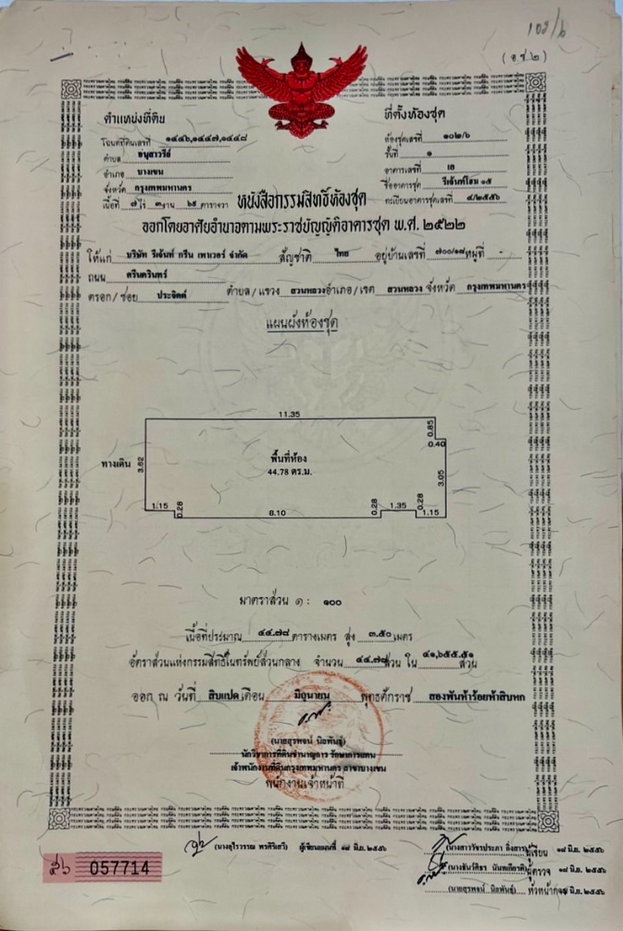 102/6
(อ.ช.๒)
ตำแหน่งที่ดิน
โฉนดที่ดินเลขที่ ๑๔๔๖,๑๔๔๗,๑๔๔๘
ตำบล อนุสาวรีย์
อำเภอ บางเขน
จังหวัด กรุงเทพมหานคร
เนื้อที่ ๗ ไร่ ๓ งาน ๒๙ ตารางวา
ที่ตั้งห้องชุด
ห้องชุดเลขที่ ๑๐๒/๖
ชั้นที่ ๑
อาคารเลขที่ เอ
ชื่ออาคารชุด รีเจ้นท์โฮม ๑๕
ทะเบียนอาคารชุดเลขที่ ๔/๒๕๕๖
หนังสือกรรมสิทธิ์ห้องชุด
ออกโดยอาศัยอำนาจตามพระราชบัญญัติอาคารชุด พ.ศ. ๒๕๒๒
ให้แก่ บริษัท รีเจ้นท์ กรีน เพาเวอร์ จำกัด สัญชาติ ไทย อยู่บ้านเลขที่ ๗๐๐/๑๗ หมู่ที่ -
ถนน ศรีนครินทร์
ตรอก/ซอย ประจิตต์ ตำบล/แขวง สวนหลวง อำเภอ/เขต สวนหลวง จังหวัด กรุงเทพมหานคร
แผนผังห้องชุด
11.35
0.85
0.40
ทางเดิน
3.62
พื้นที่ห้อง
44.78 ตร.ม.
3.05
1.15
0.28
8.10
0.28
1.35
0.28
1.15
มาตราส่วน ๑ : ๑๐๐
เนื้อที่ประมาณ ๔๔.๗๘ ตารางเมตร สูง ๓.๕๐ เมตร
อัตราส่วนแห่งกรรมสิทธิ์ในทรัพย์ส่วนกลาง จำนวน ๔๔.๗๘ ส่วน ใน ๔๑,๖๕๕.๕๑ ส่วน
ออก ณ วันที่ สิบแปด เดือน มิถุนายน พุทธศักราช สองพันห้าร้อยห้าสิบหก
(นายสุรพจน์ นิลพันธุ์)
นักวิชาการที่ดินชำนาญการ รักษาการแทน
เจ้าพนักงานที่ดินกรุงเทพมหานคร สาขาบางเขน
พนักงานเจ้าหน้าที่
ผู้เขียนแผนที่ ๑๗ มิ.ย. ๒๕๕๖
ผู้เขียน ๑๗ มิ.ย. ๒๕๕๖
ผู้ตรวจ ๑๗ มิ.ย. ๒๕๕๖
(นายสุรพจน์ นิลพันธุ์) หัวหน้า มิ.ย. ๒๕๕๖
๕๖ 057714